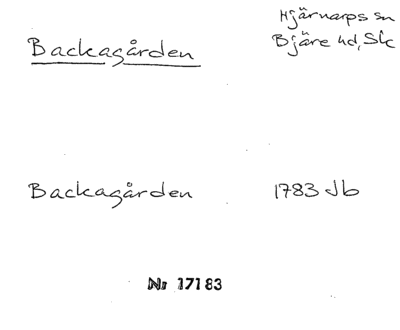 Backagården
Hjärnarps sn
Bjäre hd, Sk
Backagården 1783 Jb
Nr 17183